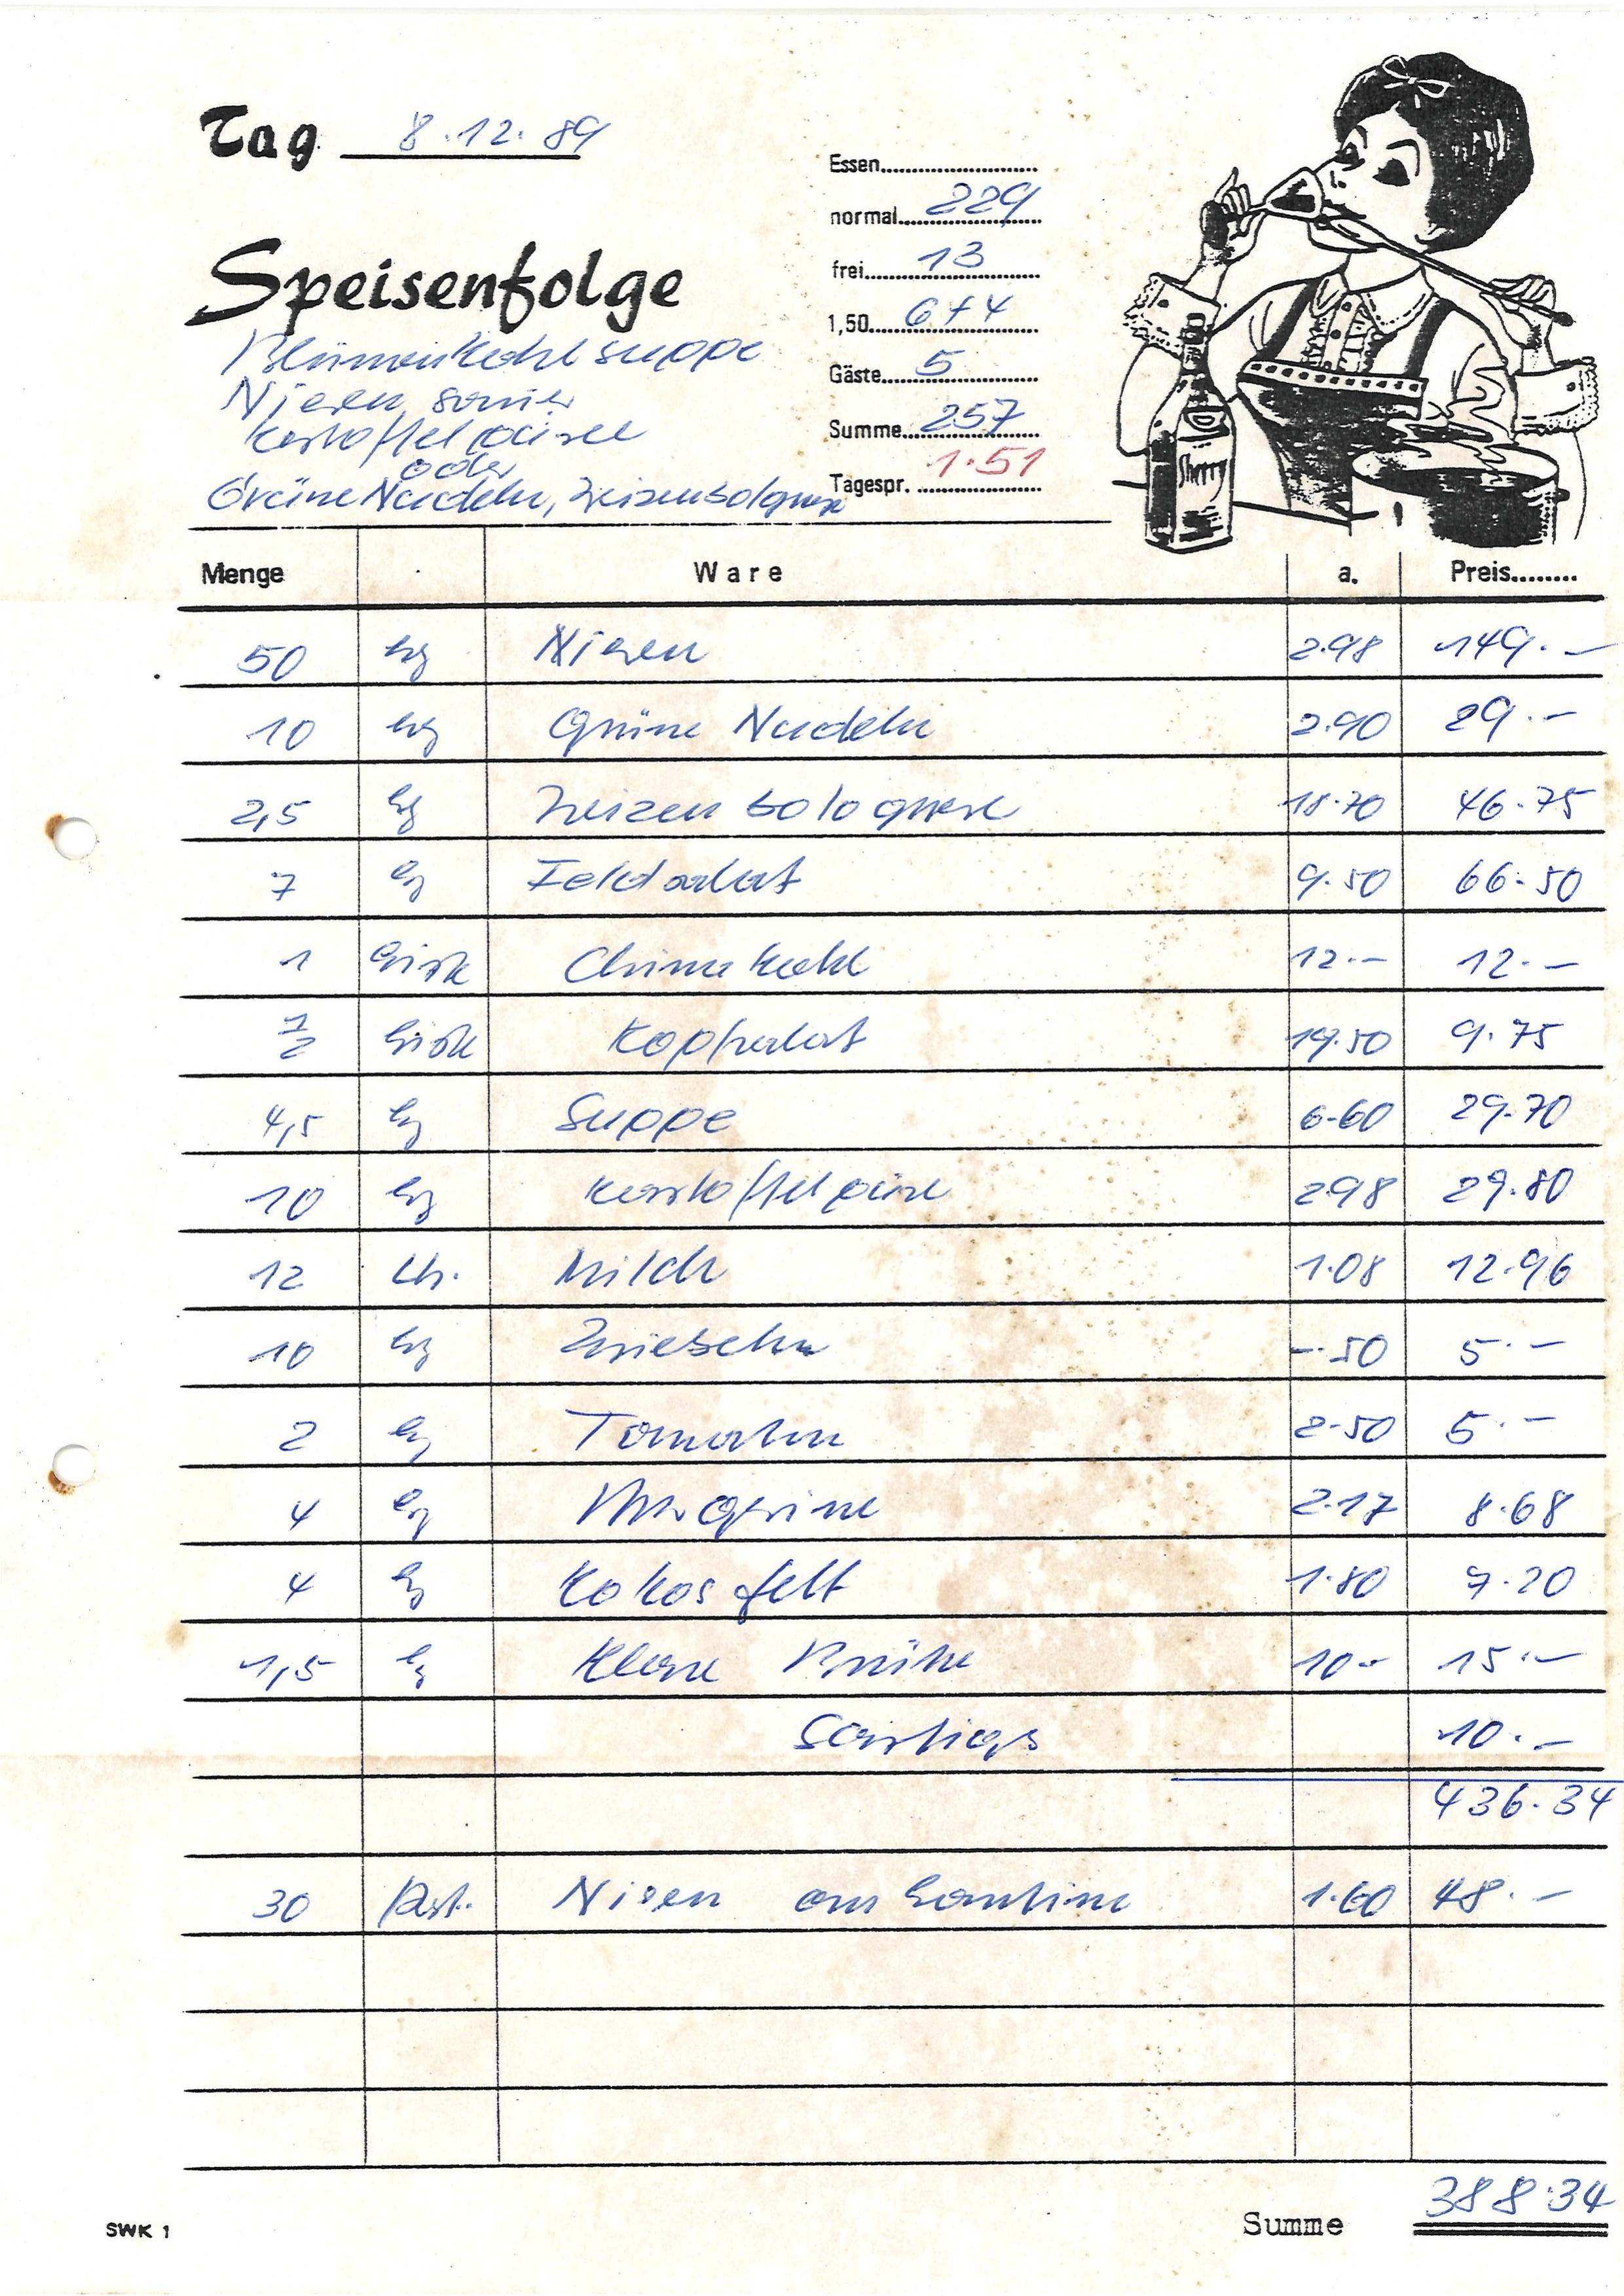 Tag 8.12.89
Essen
normal 229
frei 13
1,50 6+4
Gäste 5
Summe 257
Tagespr. 1.51
Speisenfolge
Blumenkohlsuppe
Nieren, sauer
Kartoffelpüree
oder
Grüne Nudeln, Weizenbolognese
Sherry
Menge Ware a. Preis
50 kg Nieren 2.98 149.-
10 kg Grüne Nudeln 2.90 29.-
2,5 kg Weizenbolognese 18.70 46.75
7 kg Feldsalat 9.50 66.50
1 Kiste Chinakohl 12.- 12.-
1/2 Kiste Kopfsalat 19.50 9.75
4,5 kg Suppe 6.60 29.70
10 kg Kartoffelpüree 2.98 29.80
12 Ltr. Milch 1.08 12.96
10 kg Zwiebeln -.50 5.-
2 kg Tomaten 2.50 5.-
4 kg Margarine 2.17 8.68
4 kg Kokosfett 1.80 7.20
1,5 kg Klare Brühe 10.- 15.-
Sonstiges 10.-
436.34
30 Port. Nieren an Kantine 1.60 48.-
Summe 388.34
SWK 1